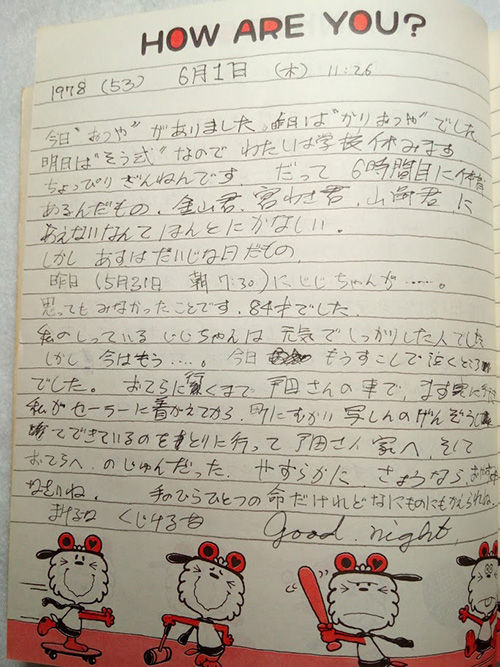 HOW ARE YOU?
1978 (53) 6月1日 (木) 11:26
今日"おつや"がありました。昨日は"かりおつや"でした
明日は"そう式"なので わたしは学校休みます
ちょっぴりざんねんです。だって 6時間目に体育
あるんだもの。金山君、宮わき君、山崎君、に
あえないなんて ほんとにかなしい。
しかし あすは だいじな日だもの。
昨日 (5月31日 朝7:30)にじじちゃんが……。
思ってもみなかったことです。84才でした。
私のしっている じじちゃんは 元気で しっかりした人でした
しかし 今はもう……。 今日 もうすこしで泣くところ
でした。 おてらに行くまで 戸田さんの車で、まず家に行
私がセーラーに着がえてから 町にむかい 写しんのげんぞう
てできているのをとりに行って 戸田さん家へ、そして
おてらへ、のじゅんだった。 やすらかに さようなら、おやす
なさいね。 手のひらひとつの命だけれど なにものにもかえられない
まけるな くじけるな Good night.